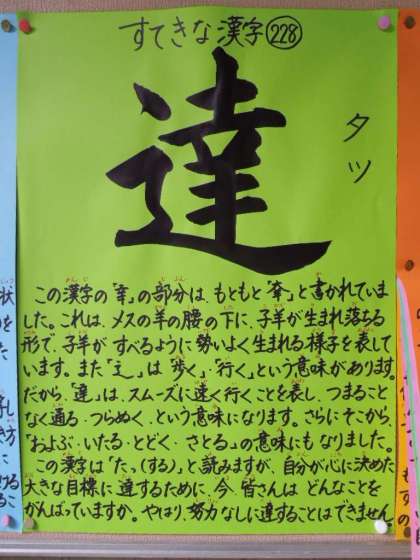 すてきな漢字228
達
タツ
この漢字の「幸」の部分は、もともと「羍」と書かれていま
した。これは、メスの羊の腰の下に、子羊が生まれ落ちる
形で、子羊がすべるように勢いよく生まれる様子を表して
います。また「辶」は「歩く」「行く」という意味があります。
だから、「達」は、スムーズに速く行くことを表し、つまること
なく通る・つらぬく、という意味になります。さらにそこから、
「およぶ・いたる・とどく・さとる」の意味にもなりました。
この漢字は「たっ(する)」と読みますが、自分が心に決めた
大きな目標に達するために、今、皆さんはどんなことを
がんばっていますか。やはり、努力なしに達することはできません